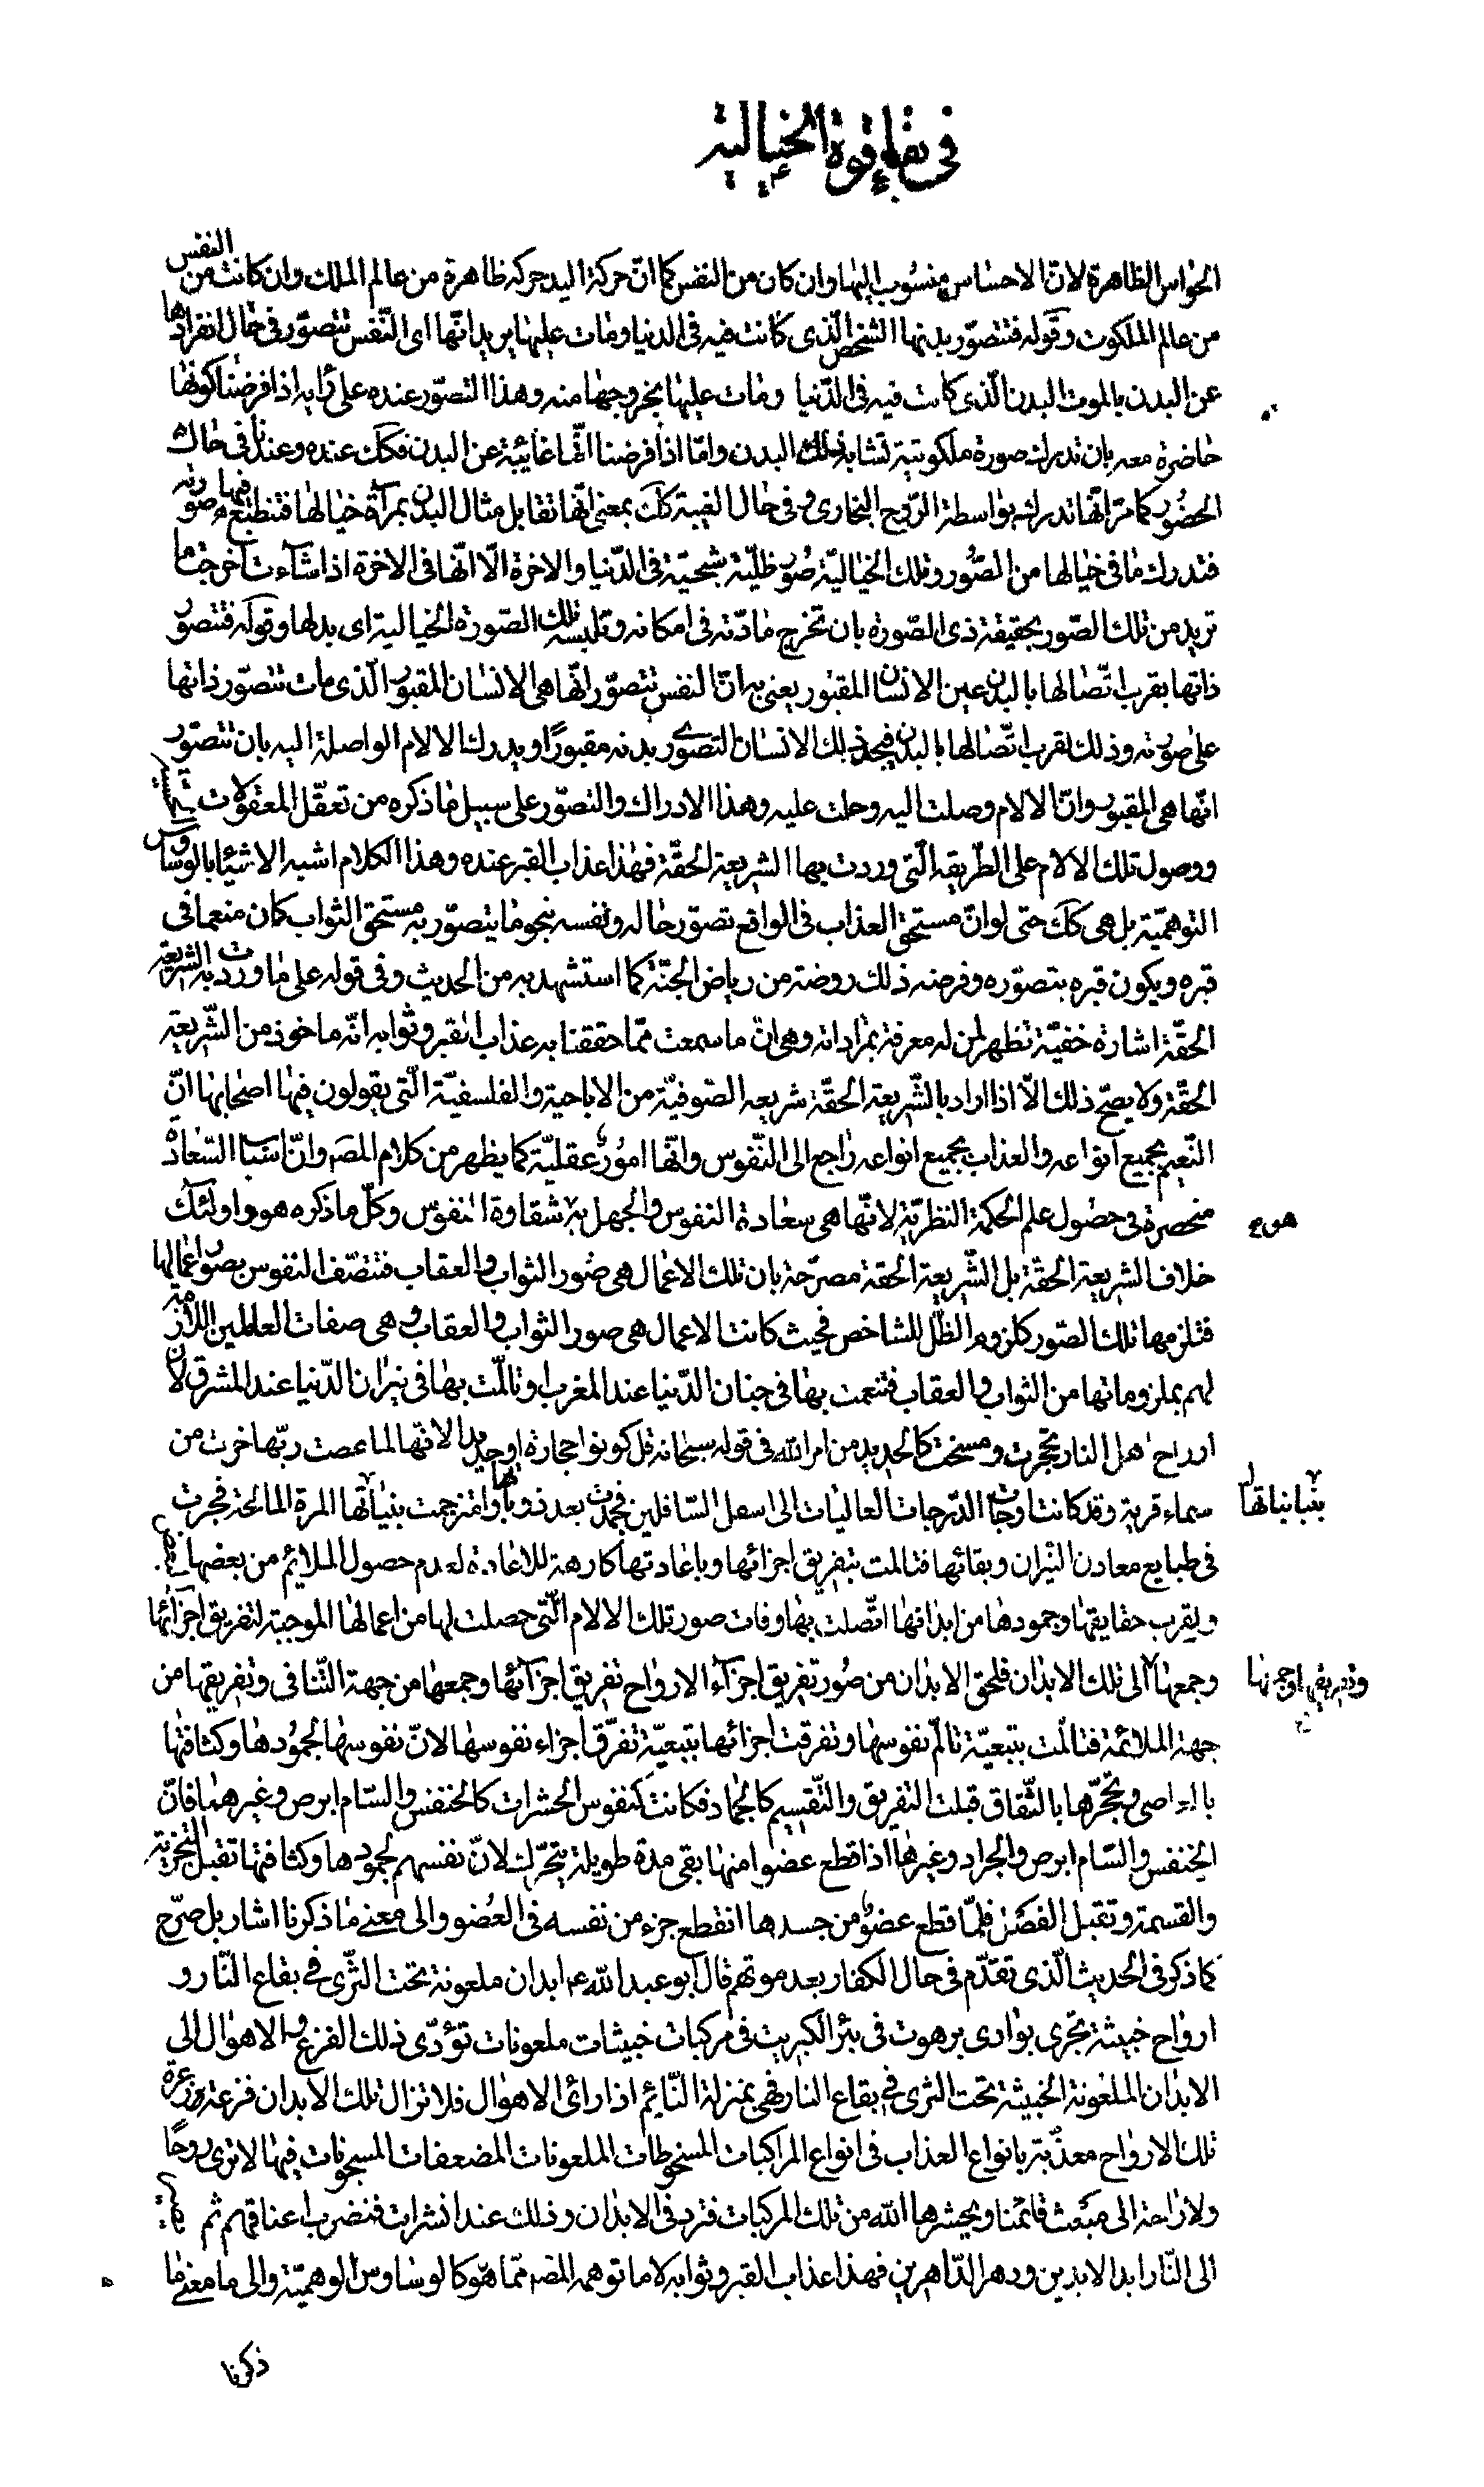 في بقاء قوة الخيالية
الحواس الظاهرة لان الاحساس منسوب اليها وان كان من النفس كما ان حركة اليد حركه ظاهرة من عالم الملك وان كانت من النفس
من عالم الملكوت وقوله فتتصور بدنها الشخص الذى كانت فيه فى الدنيا ومات عليها يريد انها اى النفس تتصور فى حال انفرادها
عن البدن بالموت البدن الذى كانت فيه فى الدنيا ومات عليها بخروجها منه وهذا التصور عنده على رايه اذا فرضنا كونها
حاضرة معه بان تدرك صورة ملكوتية تشابه ذلك البدن واما اذا فرضنا انها غائبة عن البدن فكك عنده وعندنا فى حال
الحضور كما مر انها تدرك بواسطة الروح البخارى وفى حال الغيبة كك بمعنى انها تقابل مثال البدن بمرآة خيالها فتنطبع فيها صورته
فتدرك ما فى خيالها من الصور وتلك الخيالية صور ظلية شبحية فى الدنيا والاخرة الا انها فى الاخرة اذا شاءت اخرجت ما
تريد من تلك الصور بحقيقة ذى الصورة بان تخرج مادته فى امكانه وتلبسه تلك الصورة الخيالية اى بدلها وقوله فتتصور
ذاتها بقرب اتصالها بالبدن عين الانسان المقبور يعنى به ان النفس تتصور انها هى الانسان المقبور الذى مات تتصور ذاتها
على صورته وذلك لقرب اتصالها بالبدن فيجد ذلك الانسان التصورى بدنه مقبورًا ويدرك الالام الواصلة اليه بان تتصور
انها هى المقبور وان الالام وصلت اليه وحلت عليه وهذا الادراك والتصور على سبيل ما ذكره من تعقل المعقولات
ووصول تلك الالام على الطريقه التى وردت بها الشريعة الحقة فهذا عذاب القبر عنده وهذا الكلام اشبه الاشياء بالوساوس
التوهمية بل هى كك حتى لو ان مستحق العذاب فى الواقع تصور حاله ونفسه بنحو ما يتصور به مستحق الثواب كان منعما فى
قبره ويكون قبره بتصوره وفرضه ذلك روضة من رياض الجنة كما استشهد به من الحديث وفى قوله على ما وردت به الشريعة
الحقة اشارة خفية تظهر لمن له معرفة بمراداته وهى ان ما سمعت مما حققنا به عذاب القبر وثوابه انه ماخوذ من الشريعة
الحقة ولا يصح ذلك الا اذا اراد بالشريعة الحقة شريعه الصوفية من الاباحية والفلسفية التى يقولون فيها اصحابها ان
النعيم بجميع انواعه والعذاب بجميع انواعه راجع الى النفوس وانها امور عقلية كما يظهر من كلام المصه وان اسباب السعادة
منحصرة فى حصول علم الحكمة النظرية لانها هى سعادة النفوس والجهل به شقاوة النفوس وكل ما ذكره هو واولئك
هو ع
خلاف الشريعة الحقة بل الشريعة الحقة مصرحة بان تلك الاعمال هى صور الثواب والعقاب فتتصف النفوس بصور اعمالها
فتلزمها تلك الصور كلزوم الظل للشاخص فحيث كانت الاعمال هى صور الثواب والعقاب وهى صفات العاملين اللازمة
لهم بملزوماتها من الثواب والعقاب فتنعمت بها فى جنان الدنيا عند المغرب او تالمت بها فى نيران الدنيا عند المشرق لان
ارواح اهل النار تحجرت ومسخت كالحديد من امر الله فى قوله سبحانه قل كونوا حجارة او حديدا لانها لما عصت ربها خرت من
سماء قربه وقد كانت اوجات الدرجات العاليات الى اسفل السافلين فجمدت بعد ذوبانها وامتزجت بنياتها المرة المالحة فجرت
بنبا نباتها
فى طبايع معادن النيران وبقائها فتالمت بتفريق اجزائها وباعادتها كارهة للاعادة لعدم حصول الملايم من بعضها
ولقرب حقايقها وجمودها من ابدانها اتصلت بها وفات صور تلك الالام التى حصلت لها من اعمالها الموجبة لتفريق اجزائها
وجمعها الى تلك الابدان فلحق الابدان من صور تفريق اجزاء الارواح تفريق اجزائها وجمعها من جهة التنافى وتفريقها من
وتفريقها وجمعها
جهة الملائمة فتالمت بتبعية تالم نفوسها وتفرقت اجزائها بتبعية تفرق اجزاء نفوسها لان نفوسها لجمودها وكثافتها
بالمعاصى وتحجرها بالنفاق قبلت التفريق والتقسيم كالجماد فكانت كنفوس الحشرات كالخنفس والسام ابرص وغيرهما فان
الخنفس والسام ابرص والجراد وغيرها اذا قطع عضوا منها بقى مدة طويلة يتحرك لان نفسهم لجمودها وكثافتها تقبل التجزية
والقسمة وتقبل الفصل فلما قطع عضو من جسدها انقطع جزء من نفسه فى العضو والى معنى ما ذكرنا اشار بل صرح
كما ذكر فى الحديث الذى تقدم فى حال الكفار بعد موتهم قال ابو عبد الله ع ابدان ملعونة تحت الثرى فى بقاع النار و
ارواح خبيثة تجرى بوادى برهوت فى بئر الكبريت فى مركبات خبيثات ملعونات تؤدى ذلك الفزع والاهوال الى
الابدان الملعونة الخبيثة تحت الثرى فى بقاع النار فهى بمنزلة النائم اذا راى الاهوال فلا تزال تلك الابدان فزعة ذعرة
تلك الارواح معذبة بانواع العذاب فى انواع المراكبات المسخوطات الملعونات المضعفات المسجونات فيها لا ترى روحًا
ولا راحة الى مبعث قائمنا ويحشرها الله من تلك المركبات فترد فى الابدان وذلك عند انشرات فتضرب اعناقهم ثم
الى النار ابد الابدين ودهر الداهرين فهذا عذاب القبر وثوابه لا ما توهمه المصه مما هو كالوساوس الوهمية والى ما معنى ما
ذكرنا